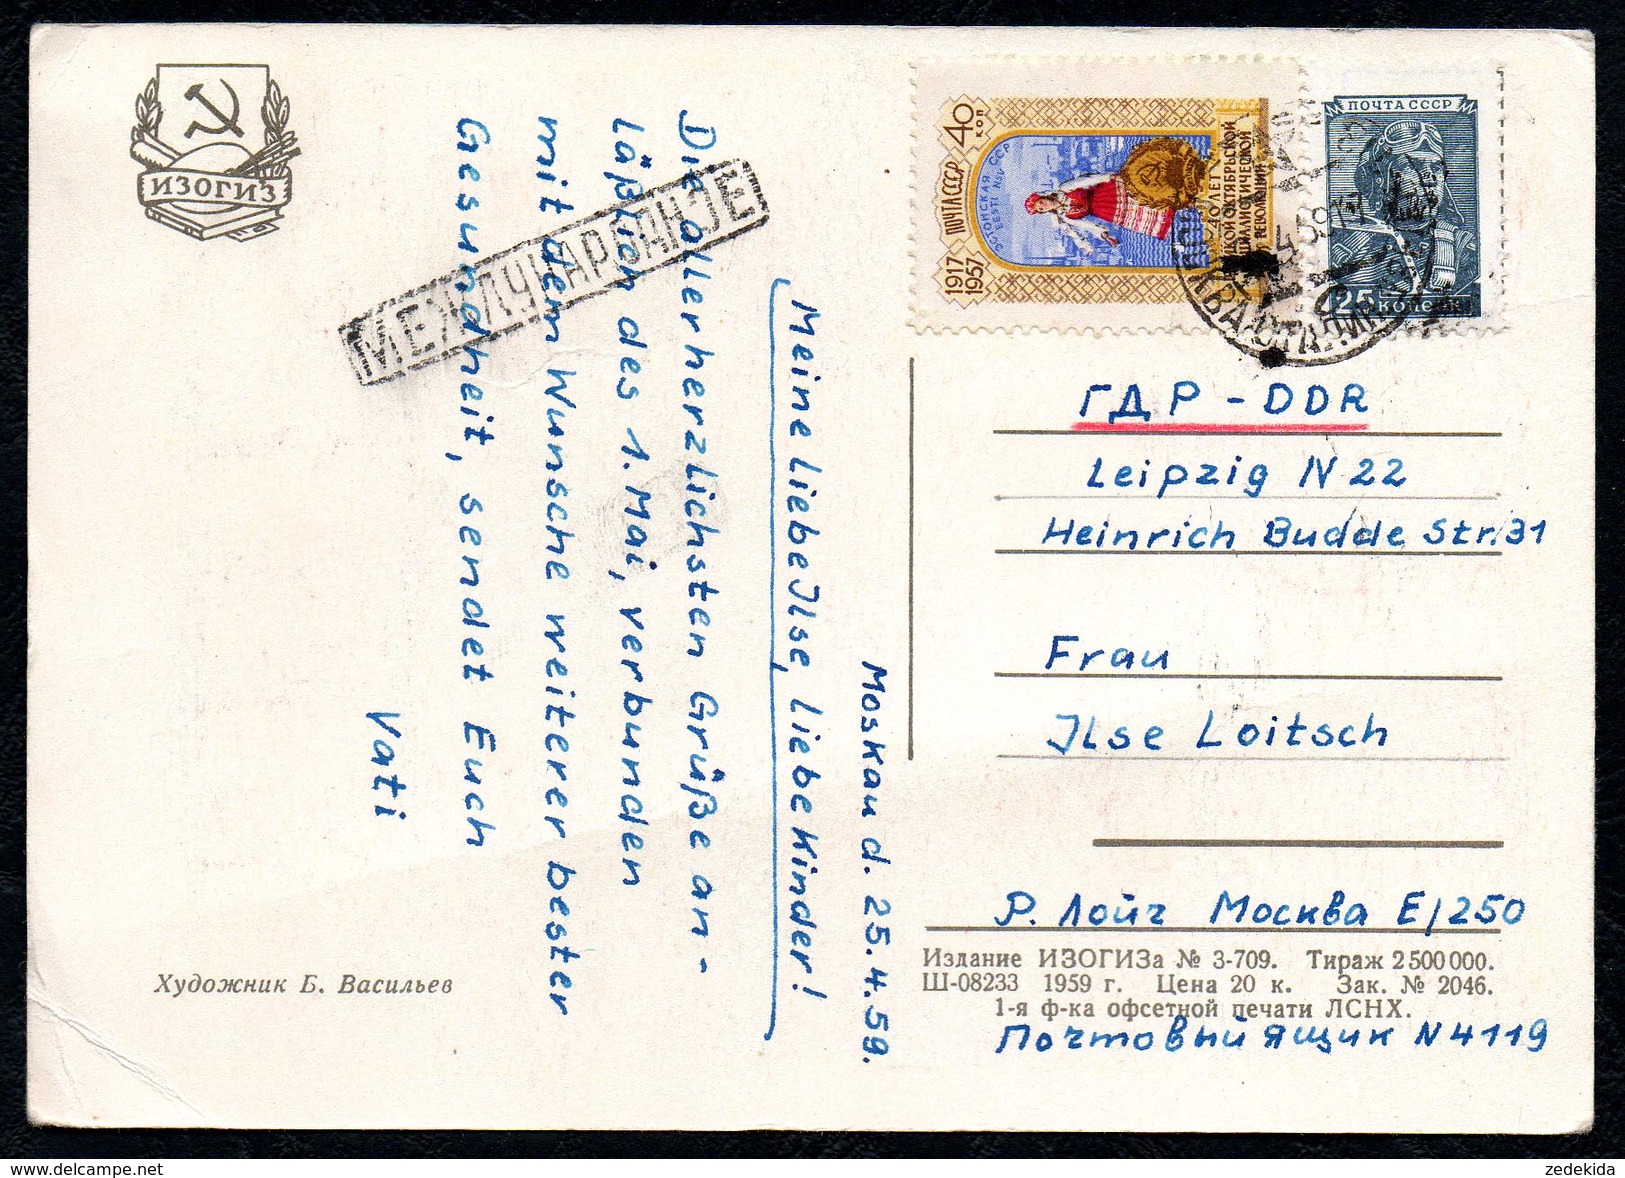 ИЗОГИЗ
МЕЖДУНАРОДНОЕ
Moskau d. 25.4.59.
Meine Liebe Ilse, Liebe Kinder!
Die allerherzlichsten Grüße an-
läßlich des 1. Mai, verbunden
mit dem Wunsche weiterer bester
Gesundheit, sendet Euch
Vati
Художник Б. Васильев
40 КОП
ПОЧТА СССР
1917
1957
ЭСТОНСКАЯ ССР
EESTI NSV
40 ЛЕТ
ОКТЯБРЬСКОЙ
СОЦИАЛИСТИЧЕСКОЙ
РЕВОЛЮЦИИ
ПОЧТА СССР
25 КОПЕЕК
ГДР - DDR
Leipzig N 22
Heinrich Budde Str. 31
Frau
Ilse Loitsch
Р. Лойч Москва Е/250
Издание ИЗОГИЗа № 3-709. Тираж 2 500 000.
Ш-08233 1959 г. Цена 20 к. Зак. № 2046.
1-я ф-ка офсетной печати ЛСНХ.
Почтовый ящик N 4119
zedekida